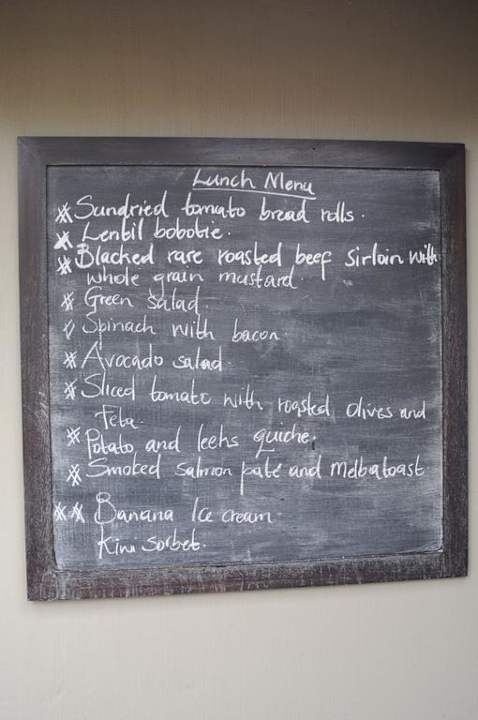 Lunch Menu
Sundried tomato bread rolls.
Lentil bobotie.
Blacked rare roasted beef sirloin with
whole grain mustard
Green salad.
Spinach with bacon.
Avocado salad.
Sliced tomato with roasted olives and
feta.
Potato and leehs quiche.
Smoked salmon pate and Melbatoast
Banana Ice cream.
Kiwi Sorbet.